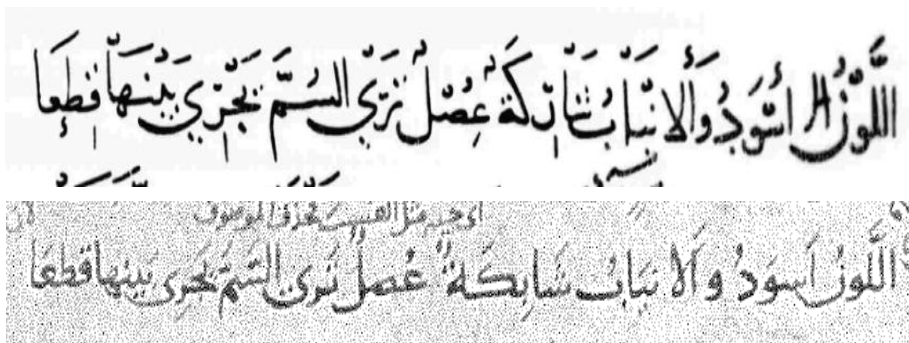 اللَّوْنُ أَسْوَدُ وَالأَنْيَابُ شَابِكَةٌ عُصْلٌ تَرَى السُّمَّ يَجْرِي بَيْنَهَا قِطَعَا
اللَّوْنُ أَسْوَدُ وَالأَنْيَابُ شَابِكَةٌ عُصْلٌ تَرَى السُّمَّ يَجْرِي بَيْنَهَا قِطَعَا